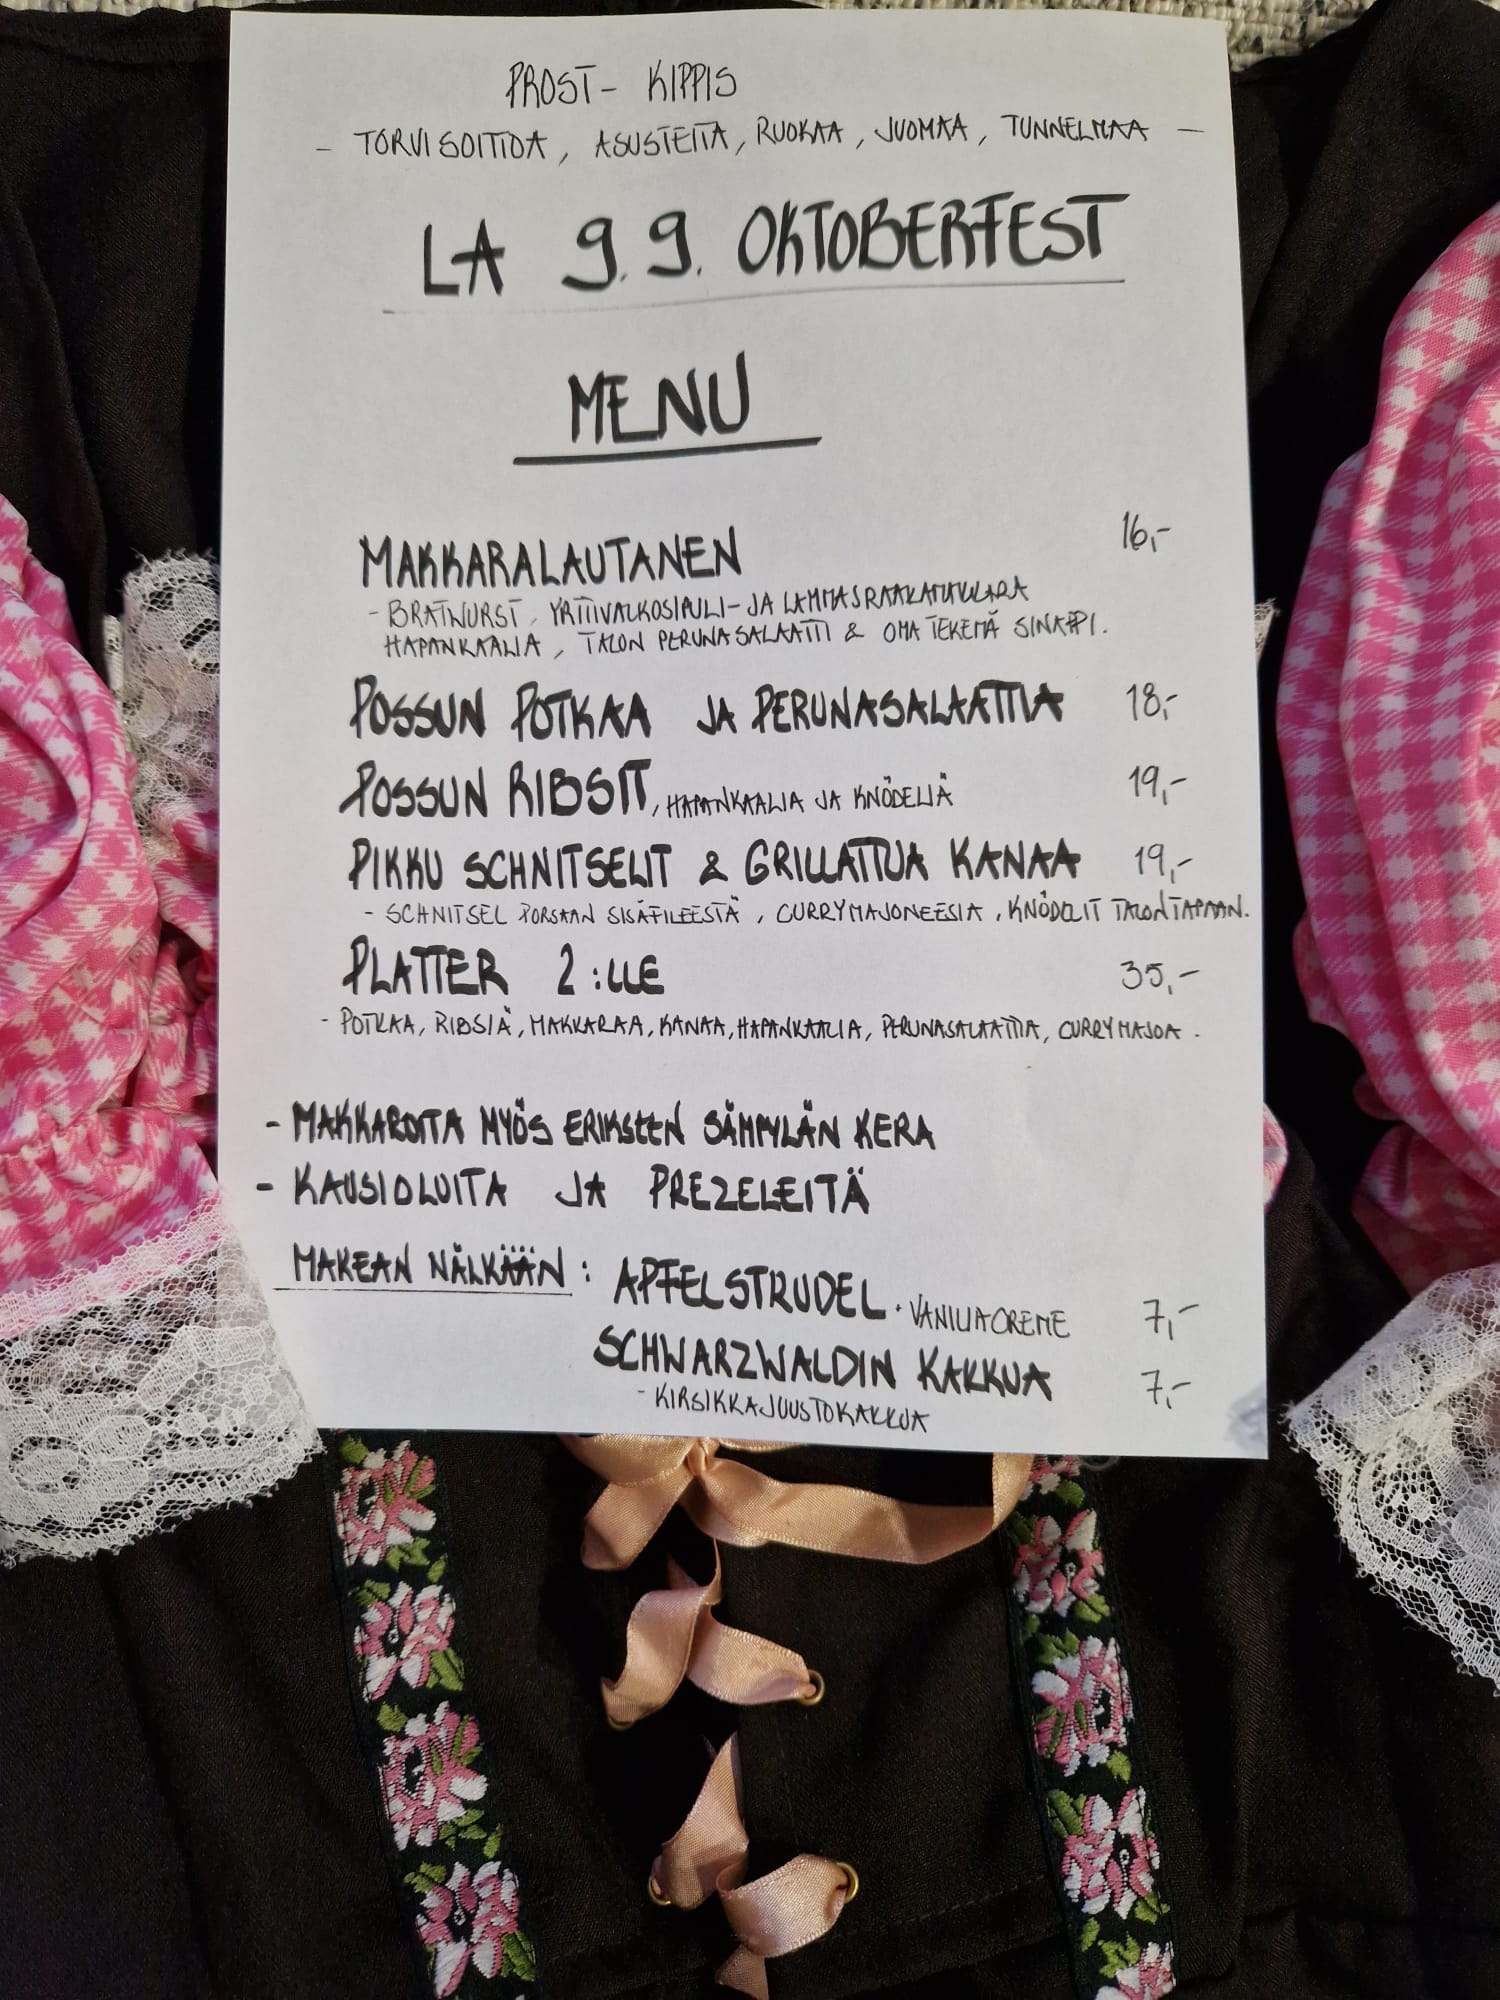 PROST - KIPPIS
- TORVISOITTOA, ASUSTEITA, RUOKAA, JUOMAA, TUNNELMAA -
LA 9.9. OKTOBERFEST
MENU
MAKKARALAUTANEN 16,-
- BRATWURST, YRTTIVALKOSIPULI- JA LAMMASRAAKAMAKKARA
HAPANKAALIA, TALON PERUNASALAATTI & OMA TEKEMÄ SINAPPI.
POSSUN POTKAA JA PERUNASALAATTIA 18,-
POSSUN RIBSIT, HAPANKAALIA JA KNÖDELIÄ 19,-
PIKKU SCHNITSELIT & GRILLATTUA KANAA 19,-
- SCHNITSEL PORSAAN SISÄFILEESTÄ, CURRYMAJONEESIA, KNÖDELIT TALON TAPAAN.
PLATTER 2:LLE 35,-
- POTKAA, RIBSIÄ, MAKKARAA, KANAA, HAPANKAALIA, PERUNASALAATTIA, CURRYMAJOA.
- MAKKAROITA MYÖS ERIKSEEN SÄMPYLÄN KERA
- KAUSIOLUITA JA PREZELEITÄ
MAKEAN NÄLKÄÄN: APFELSTRUDEL. VANILJACREME 7,-
SCHWARZWALDIN KAKKUA 7,-
- KIRSIKKAJUUSTOKAKKUA